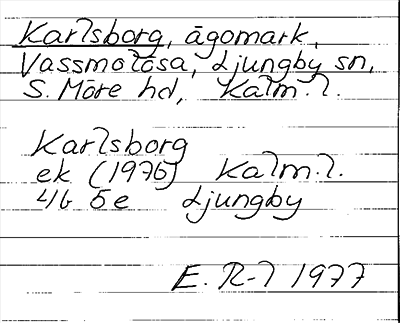 Karlsborg, ägomark,
Vassmolösa, Ljungby sn,
S. Möre hd, Kalm. l.
Karlsborg
ek (1976) Kalm. l.
4G 5e Ljungby
E. R-l 1977